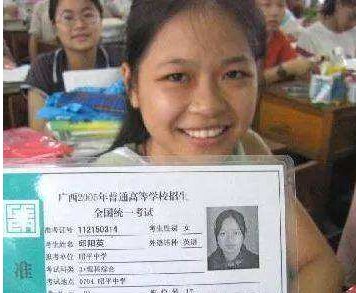 广西2005年普通高等学校招生
全国统一考试
准考证号 112150314 考生性别 女
考生姓名 邱阳英 外语语种 英语
准考单位 昭平中学
考试科类 3+理科综合
考试地点 0704.昭平中学
准